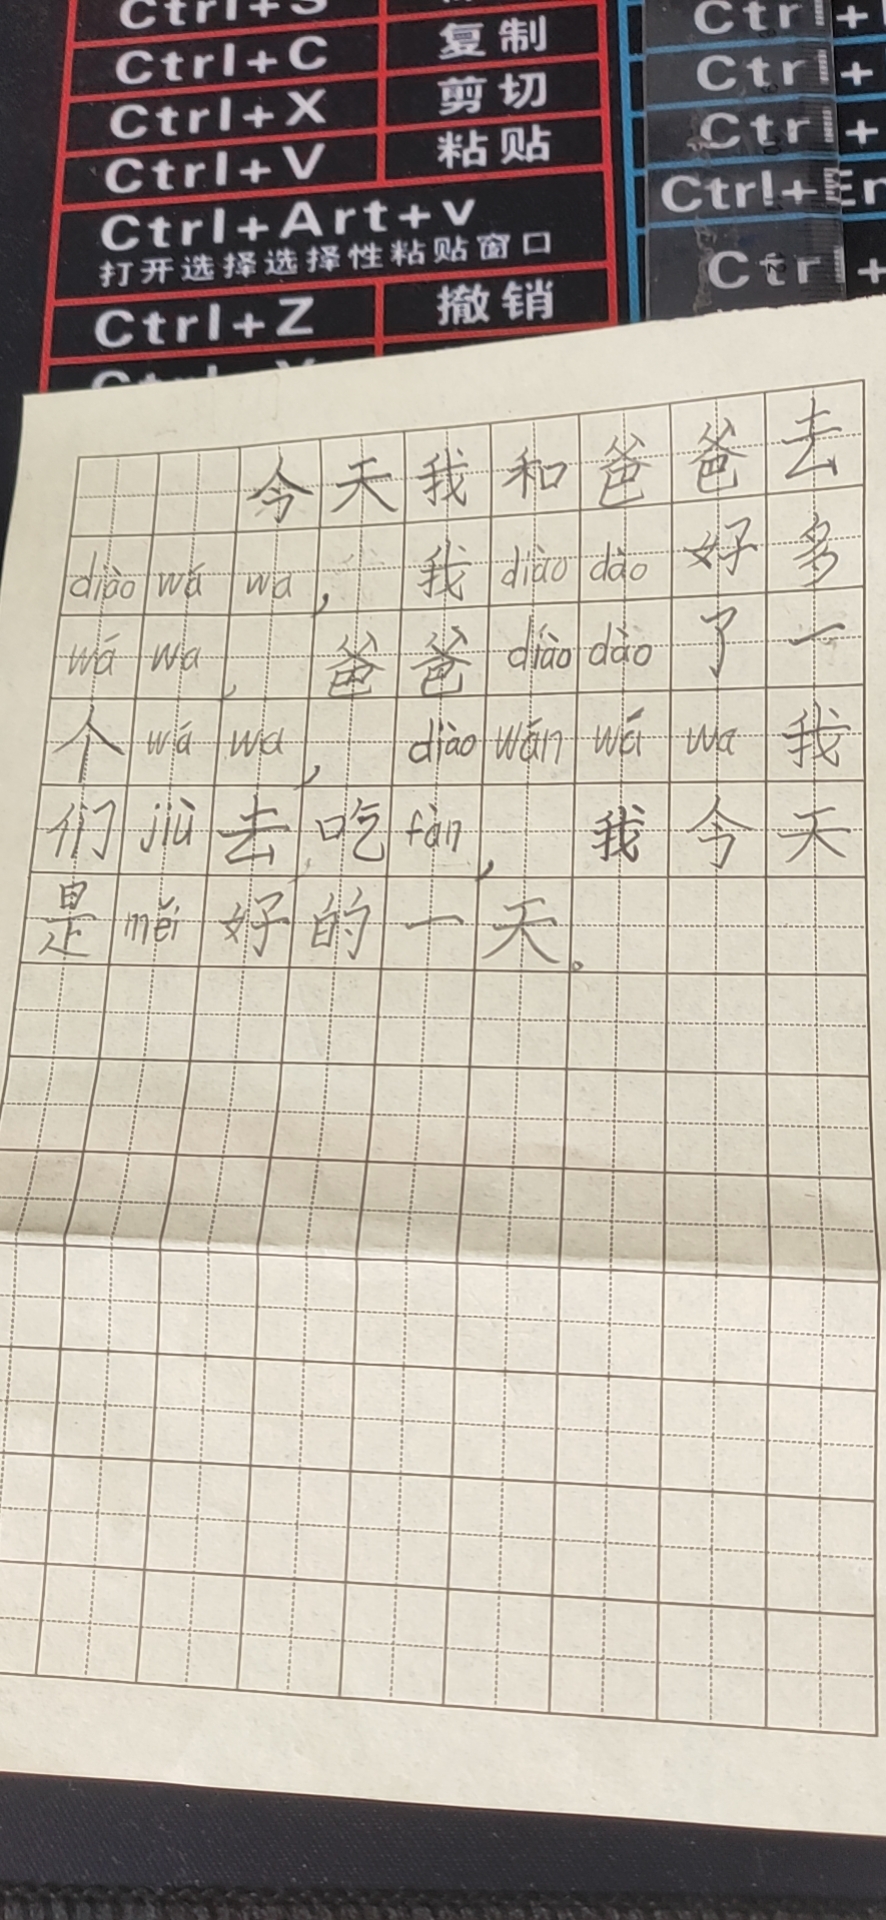 Ctrl+S
Ctrl+C 复制
Ctrl+X 剪切
Ctrl+V 粘贴
Ctrl+Art+v
打开选择选择性粘贴窗口
Ctrl+Z 撤销
Ctr +
Ctr +
Ctr +
Ctrl+En
Ctr +
今天我和爸爸去
diào wá wa，我 diào dào 好多
wá wa，爸爸 diào dào 了一
个 wá wa，diào wán wá wa 我
们 jiù 去吃 fàn，我今天
是 měi 好的一天。